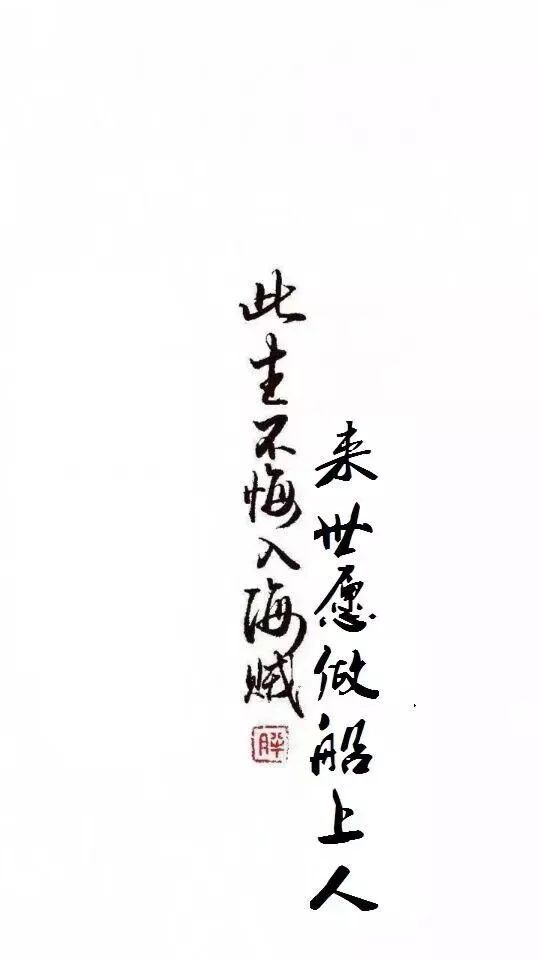 此生不悔入海贼
来世愿做船上人
胖